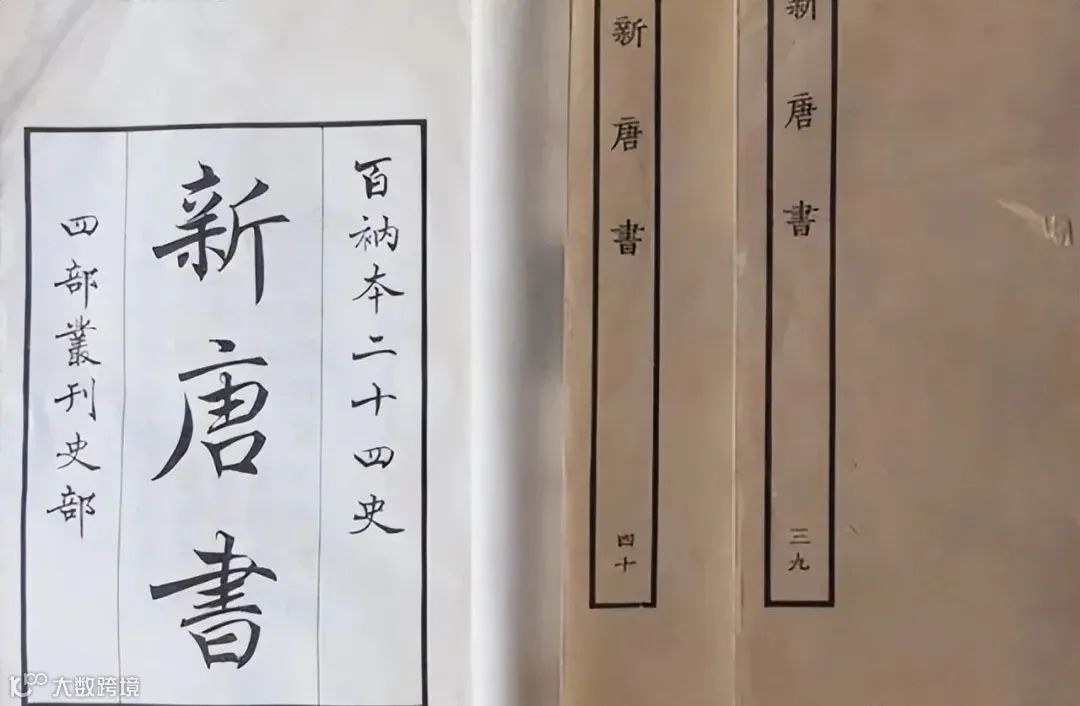 百衲本二十四史
新唐書
四部叢刊史部
新唐書
三九
新唐書
四十
大数跨境